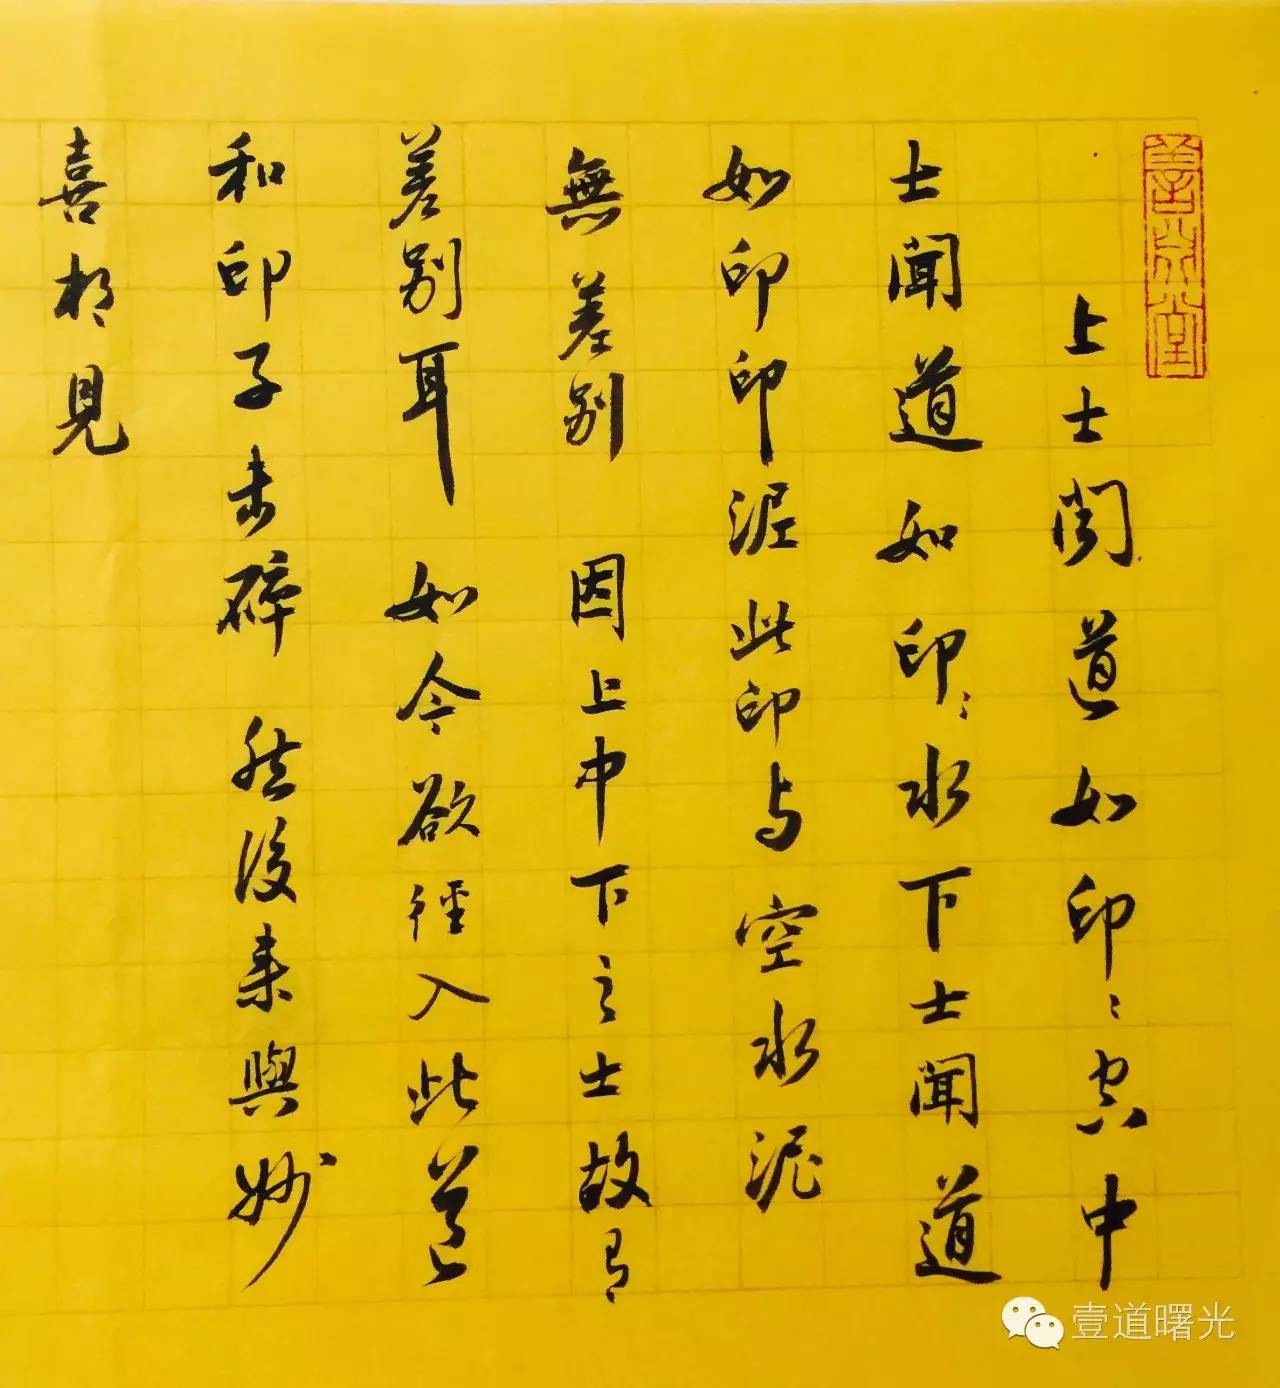 上士聞道如印〻空中
士聞道如印〻水下士聞道
如印印泥此印与空水泥
無差别 因上中下之士故有
差别耳 如今欲徑入此道
和印子击碎 然後来與妙
喜相見
壹道曙光